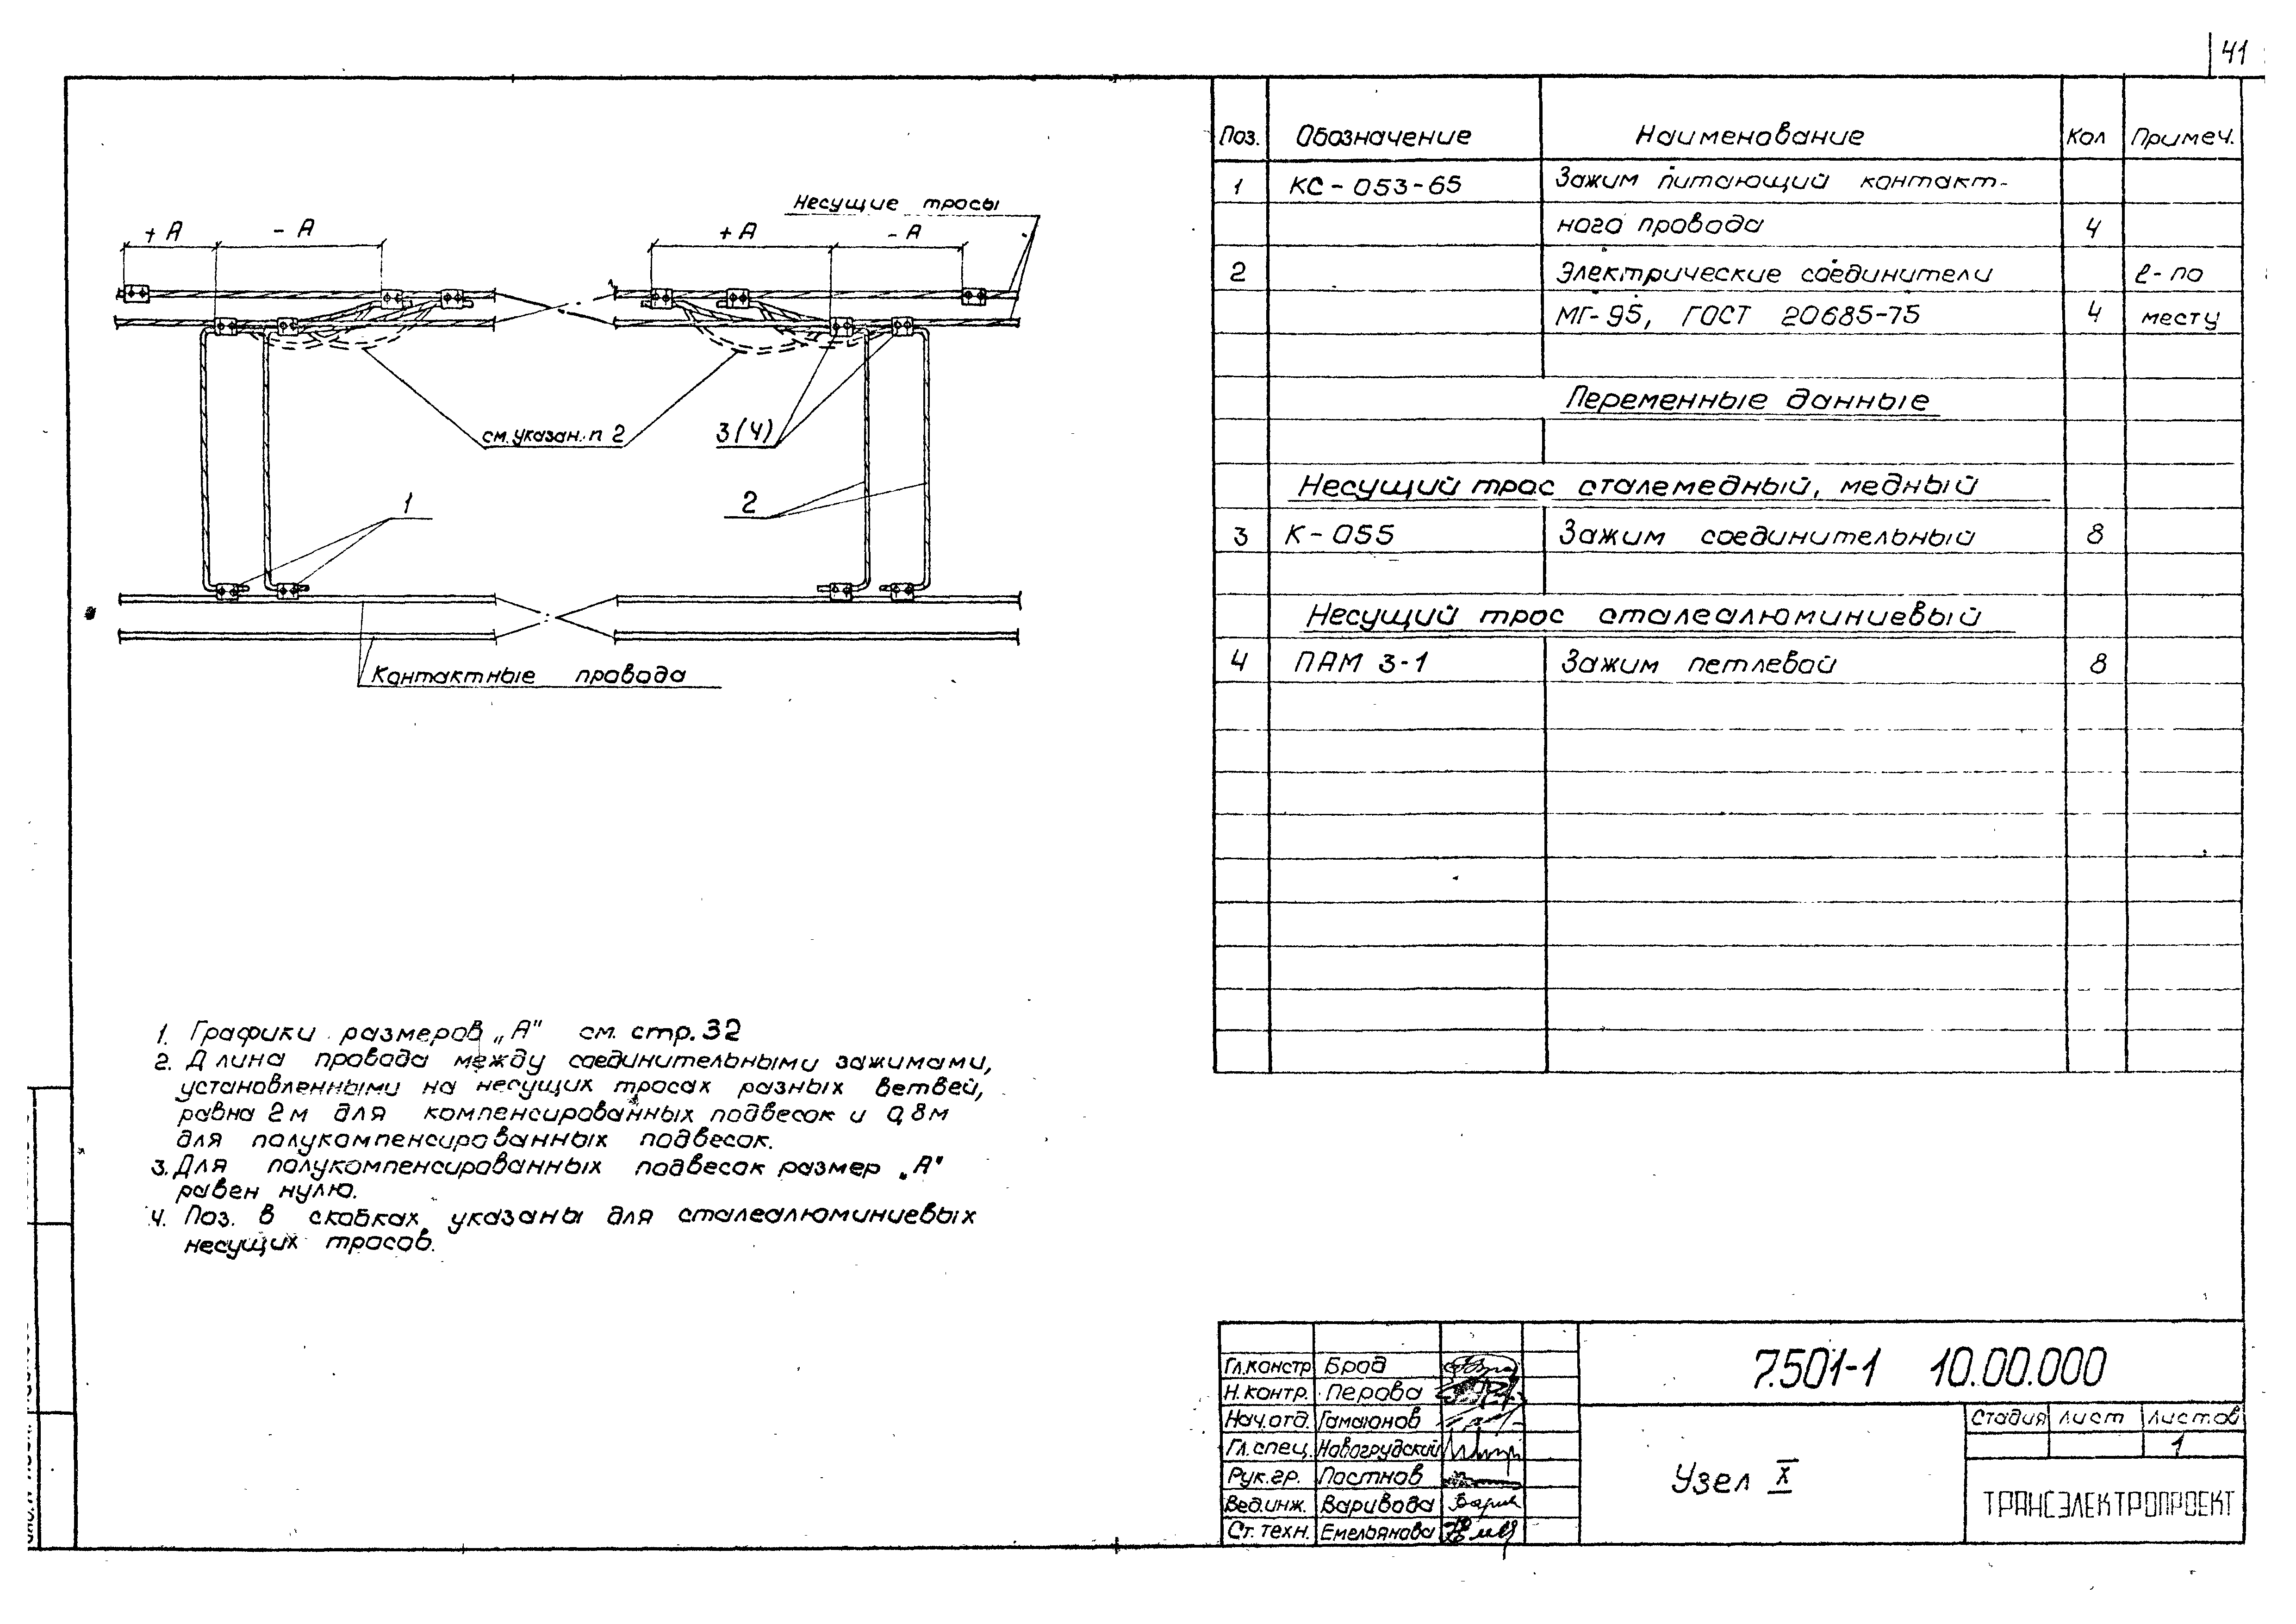 41
Несущие тросы
+А -А +А -А
см. указан. п 2
3(4)
1
2
Контактные провода
1. Графики размеров „А" см. стр. 32
2. Длина провода между соединительными зажимами,
установленными на несущих тросах разных ветвей,
равна 2м для компенсированных подвесок и 0,8м
для полукомпенсированных подвесок.
3. Для полукомпенсированных подвесок размер „А"
равен нулю.
4. Поз. в скобках указаны для сталеалюминиевых
несущих тросов.
Поз. Обозначение Наименование Кол Примеч.
1 КС-053-65 Зажим питающий контакт-
ного провода 4
2 Электрические соединители ℓ-по
МГ-95, ГОСТ 20685-75 4 месту
Переменные данные
Несущий трос сталемедный, медный
3 К-055 Зажим соединительный 8
Несущий трос сталеалюминиевый
4 ПАМ 3-1 Зажим петлевой 8
Гл.констр Брод
Н.контр. Перова
Нач.отд. Гамаюнов
Гл.спец. Новогрудский
Рук.гр. Постнов
Вед.инж. Варивода
Ст.техн. Емельянова
7.501-1 10.00.000
Узел X
Стадия Лист Листов
1
ТРАНСЭЛЕКТРОПРОЕКТ